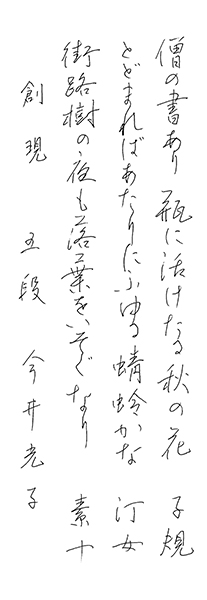 僧の書あり 瓶に活けたる秋の花 子規
とどまればあたりにふゆる蜻蛉かな 汀女
街路樹の夜も落葉をいそぐなり 素十
創現 五段 今井光子